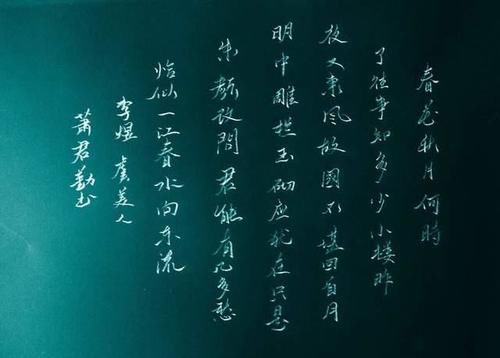 春花秋月何時
了往事知多少小樓昨
夜又東風故國不堪回首月
明中雕栏玉砌應犹在只是
朱颜改問君能有几多愁
恰似一江春水向东流
李煜 虞美人
萧君勤书